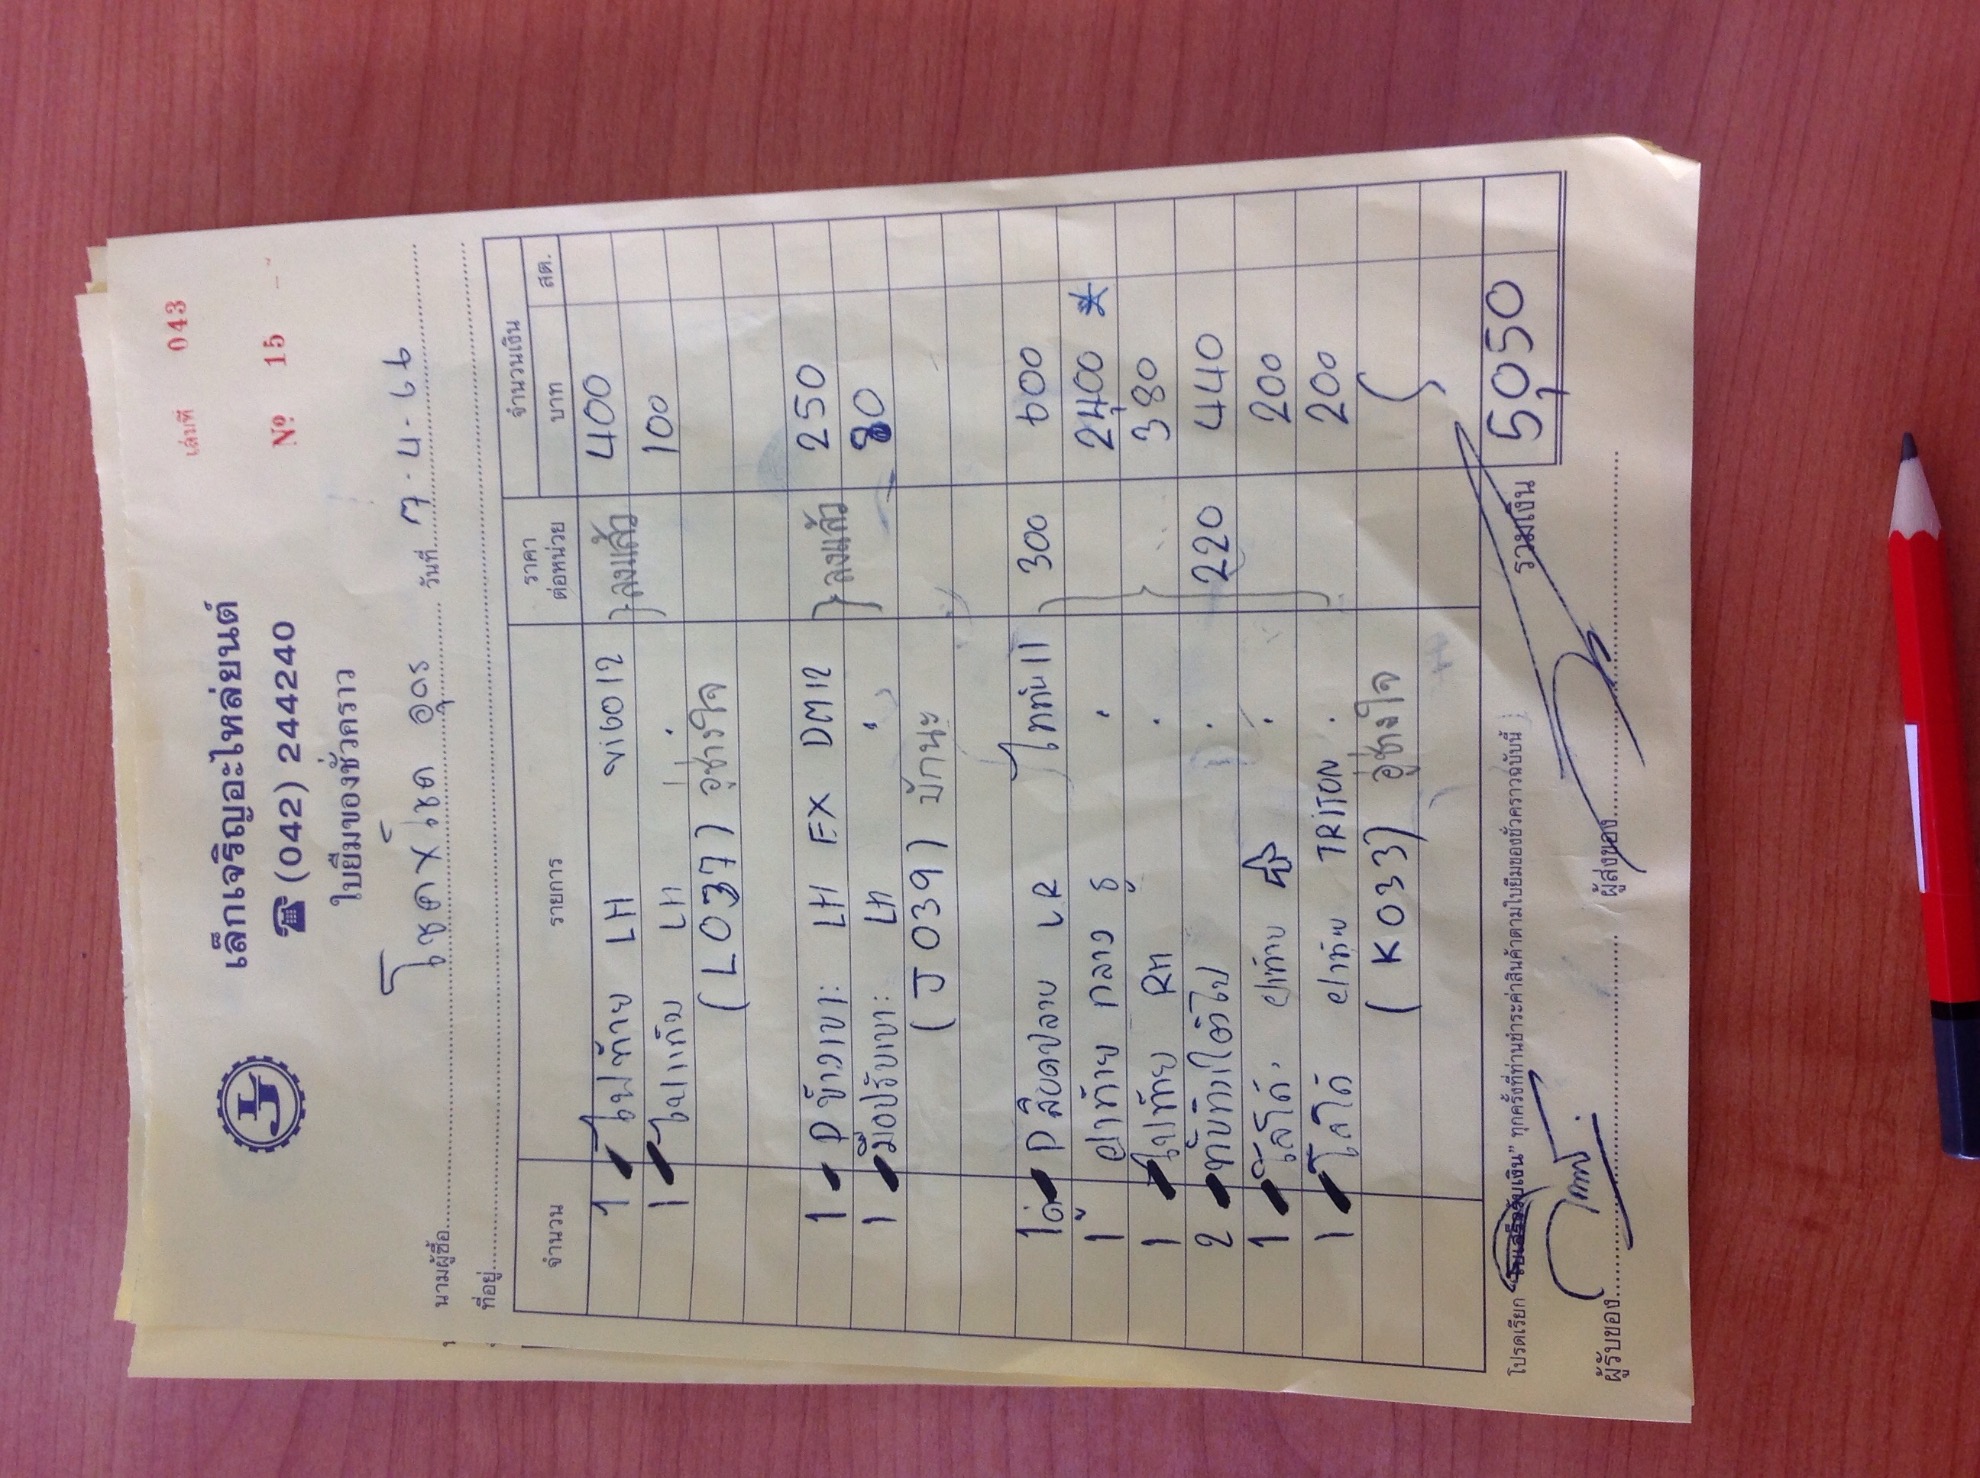 เล่มที่ 043
เล็กเจริญอะไหล่ยนต์
☎ (042) 244240
Nº 15
ใบยืมของชั่วคราว
นามผู้ซื้อ โชคXโชค อุดร วันที่ 7-4-66
ที่อยู่
จำนวน รายการ ราคาต่อหน่วย จำนวนเงิน
บาท สต.
1 ไฟท้าย LH VIGO 12 ลงแล้ว 400
1 ไฟแก้ม LH " 100
(L037) อู่ช่างใจ
1 P ข้างเบาะ LH EX DM12 ลงแล้ว 250
1 มือปรับเบาะ LH " 80
(J039) บักนะ
1 คู่ P LR ไททัน 11 300 600
1 ฝาท้าย กลาง รู " 2400 *
1 ไฟท้าย RH " 380
2 " 220 440
1 โลโก้ ฝาท้าย " 200
1 โลโก้ ฝาท้าย TRITON " 200
(K033) อู่ช่างใจ
รวมเงิน 5050
โปรดเรียก "ใบเสร็จรับเงิน" ทุกครั้งที่ท่านชำระค่าสินค้าตามใบยืมของชั่วคราวฉบับนี้
ผู้รับของ ผู้ส่งของ